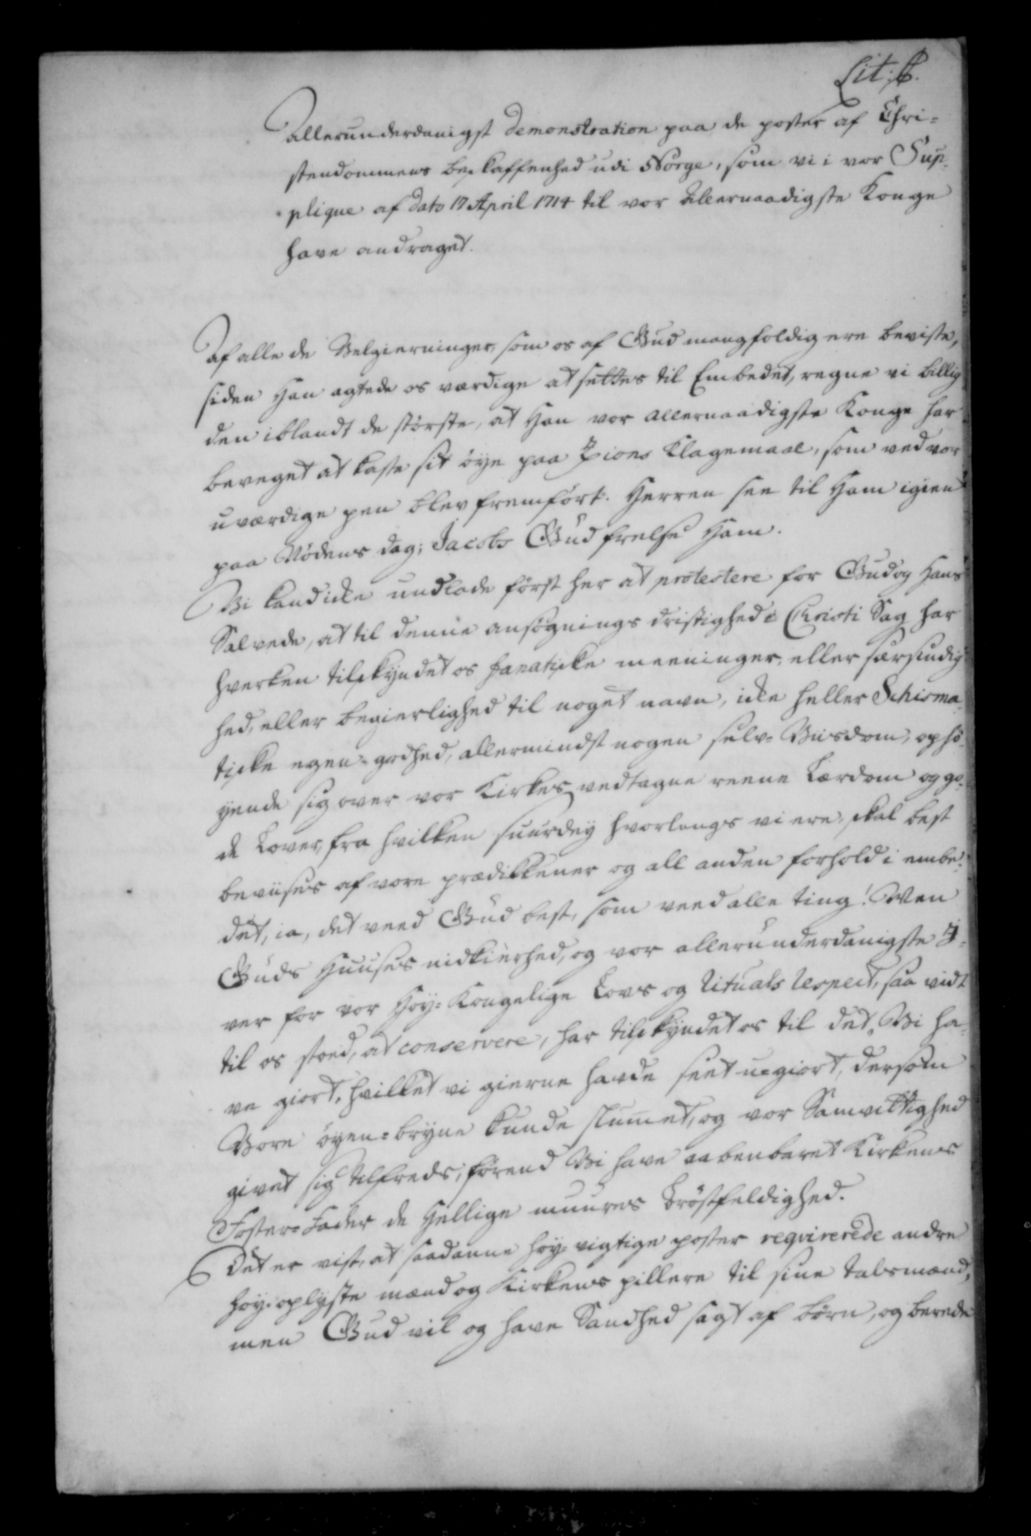 Lit: B.
Allerunderdanigst Demonstration paa de poster af Chri-
stendommens beskaffenhed udi Norge, som vi i vor Sup-
plique af dato 17 April 1714 til vor Allernaadigste Konge
have andraget.
Af alle de Velgierninger som os af Gud mangfoldig ere beviste,
siden Han agtede os værdige at settes til Embedet, regne vi billig
den iblandt de største, at Han vor allernaadigste Konge har
beveget at kaste sit øye paa Zions Klagemaal, som ved vor
uværdige pen blev fremført. Herren see til Ham igien
paa Nødens dag; Jacobs Gud frelse Ham.
Vi kand icke undlade først her at protestere for Gud og Hans
Salvede, at til denne ansøgnings dristighed i Christi Sag har
hverken tilskyndet os fanatiske meeninger, eller særsindig-
hed, eller begierlighed til noget navn, icke heller Schisma-
tiske egen-godhed, allermindst nogen selv-Viisdom, ophø-
yende sig over vor Kirkes vedtagne reene Lærdom og go-
de Lover, fra hvilken suurdey hvorlangt vi ere, skal best
beviises af vore prædikkener og all anden forhold i embe-
det, ia, det veed Gud best, som veed alle ting! Men
Guds Huuses nidkierhed, og vor allerunderdanigste I-
ver for vor Høy-Kongelige Lovs og Rituals respect, saa vidt
til os stoed, at conservere, har tilskyndet os til det Vi ha-
ve giort, hvilket vi gierne havde seet u-giort, dersom
Vore øyen-bryne kunde slumet, og vor Samvittighed
givet sig tilfreds, førend Vi have aabenbaret Kirkens
Foster-Fader de Hellige muures brøstfeldighed.
Det er vist, at saadanne høy-vigtige poster reqvirerede andre
høy-oplyste mænd og Kirkens pillere til sine talsmænd,
men Gud vil og have Sandhed sagt af børn, og berede